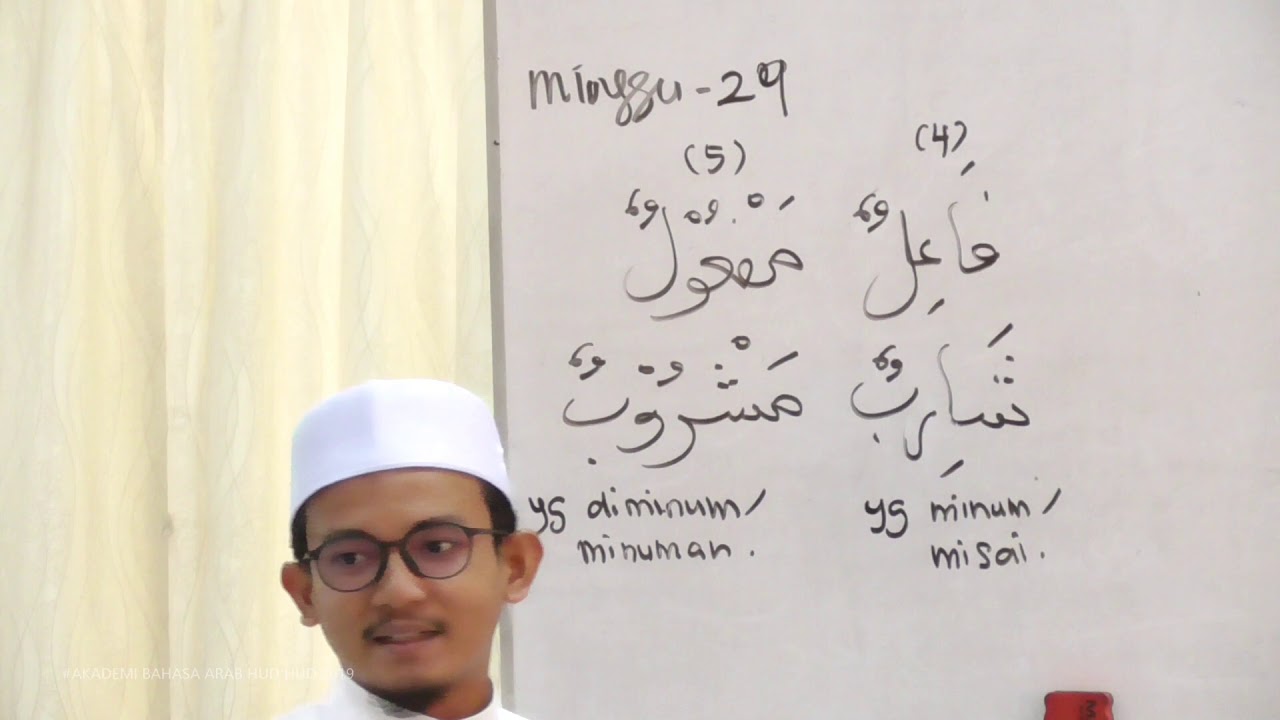 Minggu - 29
(5) (4)
فَاعِلٌ مَفْعُوْلٌ
شَارِبٌ مَشْرُوْبٌ
yg diminum/ yg minum/
minuman. misai.
#AKADEMI BAHASA ARAB HUD HUD 2019